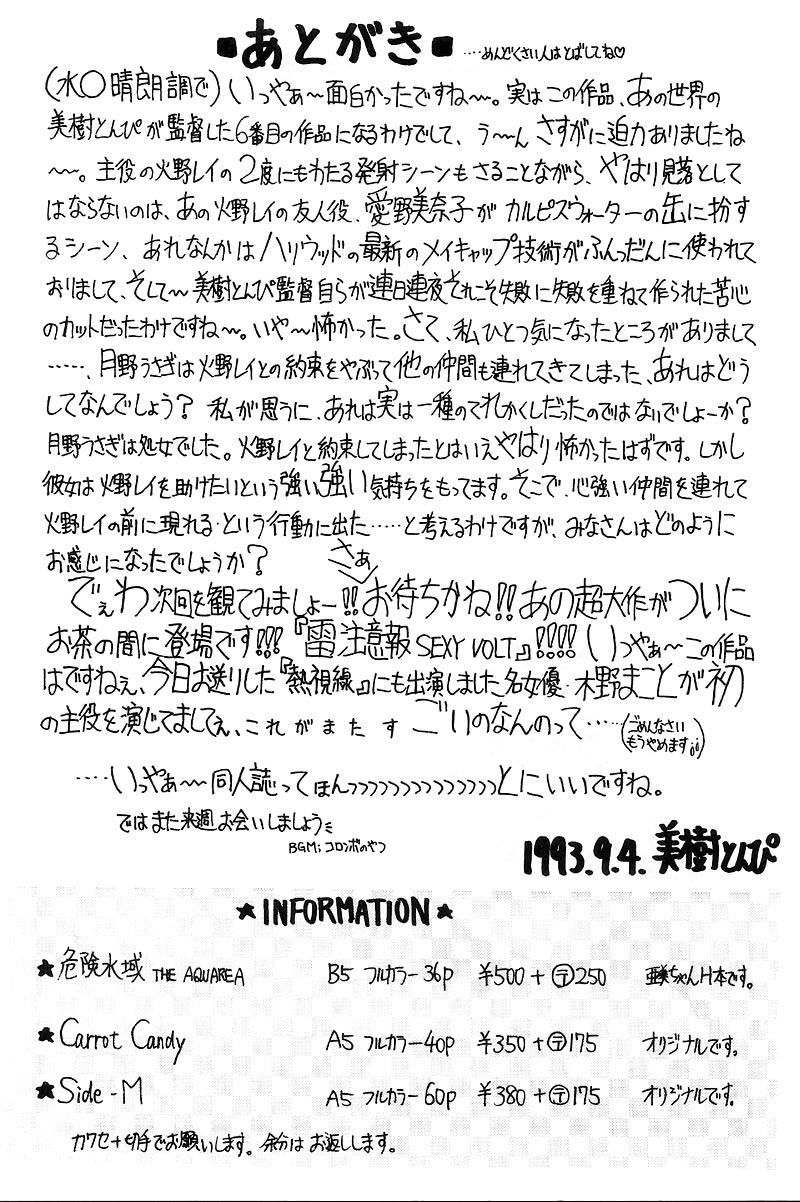 ■あとがき■ ‥‥めんどくさい人はとばしてね♡
(水〇晴朗調で)いっやぁ〜面白かったですね〜。実はこの作品、あの世界の
美樹とんぴが監督した6番目の作品になるわけでして、う〜ん さすがに迫力ありましたね
〜〜。主役の火野レイの2度にもわたる発射シーンもさることながら、やはり見落として
はならないのは、あの火野レイの友人役、愛野美奈子がカルピスウォーターの缶に扮す
るシーン、あれなんかはハリウッドの最新のメイキャップ技術がふんだんに使われて
おりまして、そして〜美樹とんぴ監督自らが連日連夜それこそ失敗に失敗を重ねて作られた苦心
のカットだったわけですね〜。いや〜怖かった。さて、私ひとつ気になったところがありまして
‥‥‥、月野うさぎは火野レイとの約束をやぶって他の仲間も連れてきてしまった、あれはどう
してなんでしょう? 私が思うに、あれは実は一種のてれかくしだったのではないでしょーか?
月野うさぎは処女でした。火野レイと約束してしまったとはいえやはり怖かったはずです。しかし
彼女は火野レイを助けたいという強い強い気持ちをもってます。そこで、心強い仲間を連れて
火野レイの前に現れる‥という行動に出た‥‥‥と考えるわけですが、みなさんはどのように
お感じになったでしょうか?
さぁ
でぇわ次回を観てみましょー!!お待ちかね!!あの超大作がついに
お茶の間に登場です!!!『雷注意報 SEXY VOLT』!!!!いっやぁ〜この作品
はですねぇ、今日お送りした『熱視線』にも出演しました名女優・木野まことが初
の主役を演じてましてぇ、これがまたすごいのなんのって‥‥‥(ごめんなさい
もうやめます;;)
‥‥いっやぁ〜〜同人誌ってほんっっっっっっっっっっっっっっとにいいですね。
ではまた来週お会いしましょう
BGM;コロンボのやつ
1993.9.4. 美樹とんぴ
★INFORMATION★
★危険水域 THE AQUAREA B5 フルカラー36p ¥500+〒250 亜美ちゃんH本です。
★Carrot Candy A5 フルカラー40p ¥350+〒175 オリジナルです。
★Side-M A5 フルカラー60p ¥380+〒175 オリジナルです。
カワセ+切手でお願いします。余分はお返しします。